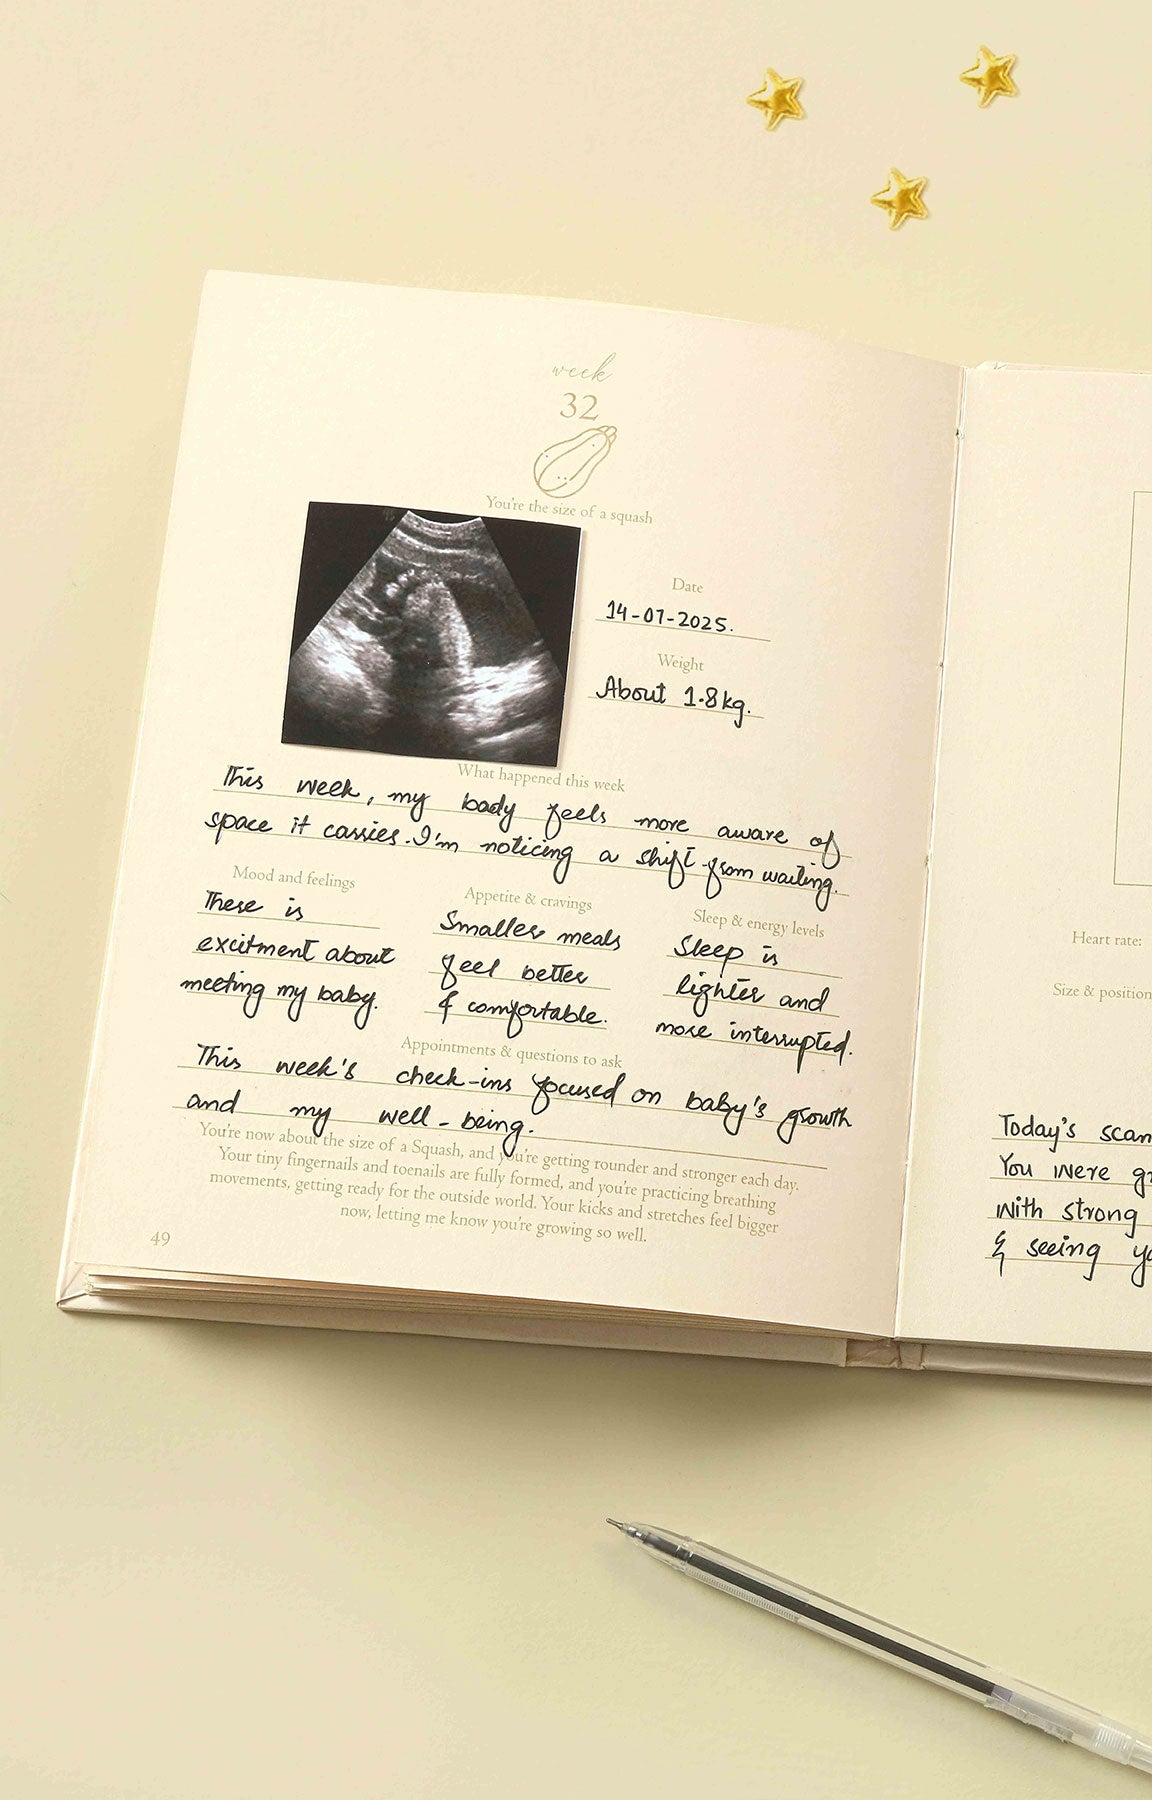 week
32
You're the size of a squash
Date
14-07-2025.
Weight
About 1.8kg.
What happened this week
This week, my body feels more aware of
space it carries. I'm noticing a shift from waiting.
Mood and feelings
There is
excitment about
meeting my baby.
Appetite & cravings
Smaller meals
feel better
& comfortable.
Sleep & energy levels
Sleep is
lighter and
more interrupted.
Appointments & questions to ask
This week's check-ins focused on baby's growth
and my well-being.
You're now about the size of a Squash, and you're getting rounder and stronger each day.
Your tiny fingernails and toenails are fully formed, and you're practicing breathing
movements, getting ready for the outside world. Your kicks and stretches feel bigger
now, letting me know you're growing so well.
49
Heart rate:
Size & position
Today's scan
You were
with strong
& seeing